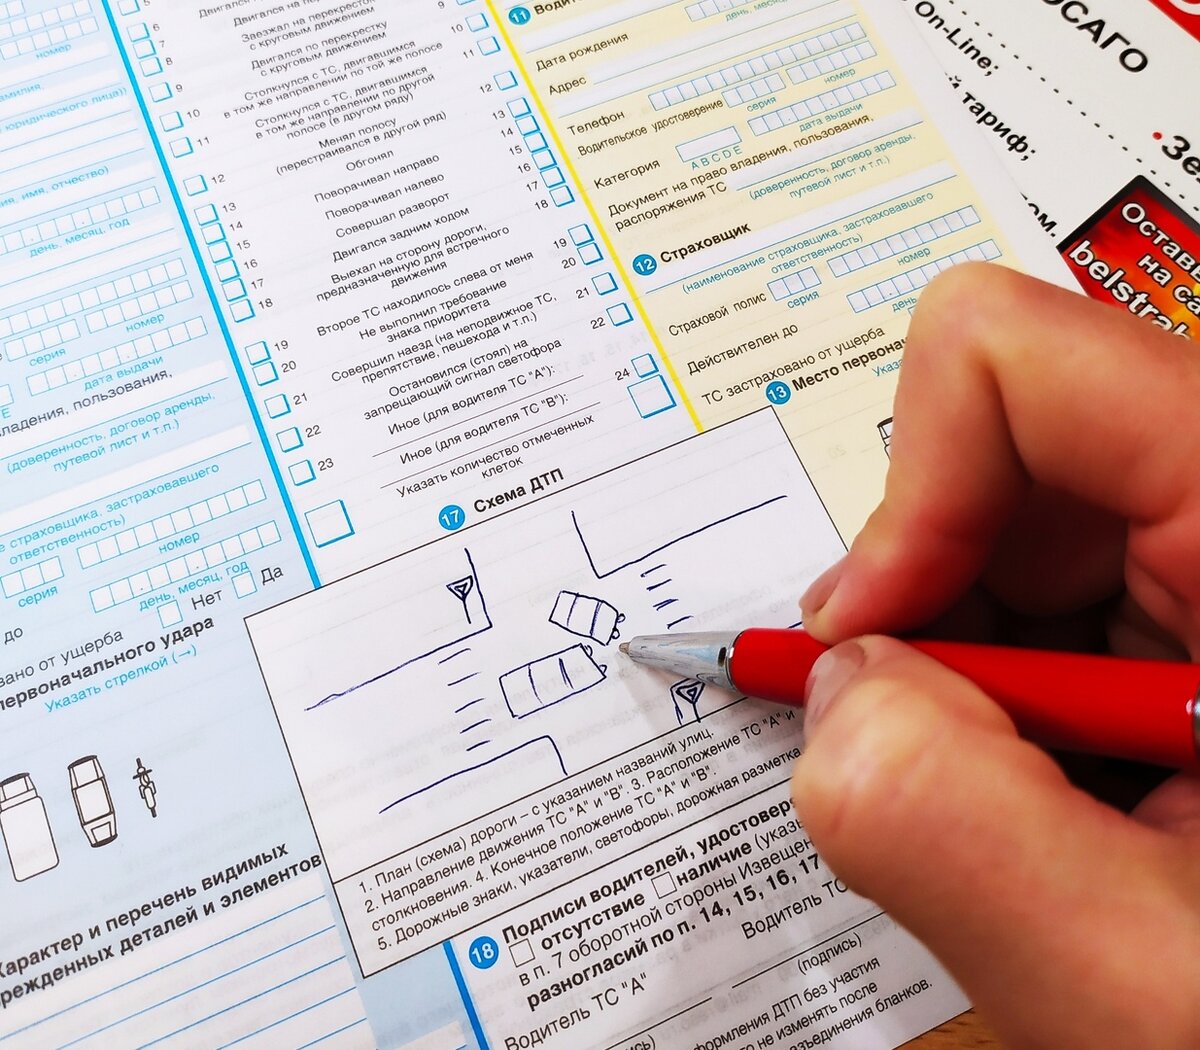 5
6
7
8
9
10
11
12
13
14
15
16
17
18
19
20
21
22
23
Двигался на перекрестке
Заезжал на перекресток
с круговым движением
Двигался по перекрестку
с круговым движением
Столкнулся с ТС, двигавшимся
в том же направлении по той же полосе
Столкнулся с ТС, двигавшимся
в том же направлении по другой
полосе (в другом ряду)
Менял полосу
(перестраивался в другой ряд)
Обгонял
Поворачивал направо
Поворачивал налево
Совершал разворот
Двигался задним ходом
Выехал на сторону дороги,
предназначенную для встречного
движения
Второе ТС находилось слева от меня
Не выполнил требование
знака приоритета
Совершил наезд (на неподвижное ТС,
препятствие, пешехода и т.п.)
Остановился (стоял) на
запрещающий сигнал светофора
Иное (для водителя ТС "А"):
Иное (для водителя ТС "В"):
Указать количество отмеченных
клеток
9
10
11
12
13
14
15
16
17
18
19
20
21
22
24
номер
юридического лица))
имя, отчество)
день, месяц, год
серия
номер
дата выдачи
владения, пользования,
(доверенность, договор аренды,
путевой лист и т.п.)
страховщика, застраховавшего
ответственность)
серия
номер
день, месяц, год
до
Нет
Да
от ущерба
первоначального удара
Указать стрелкой (→)
Характер и перечень видимых
деталей и элементов
11
Дата рождения
день,
Адрес
Телефон
Водительское удостоверение
серия
номер
Категория
A B C D E
дата выдачи
Документ на право владения, пользования,
распоряжения ТС
(доверенность, договор аренды,
путевой лист и т.п.)
12 Страховщик
(наименование страховщика, застраховавшего
ответственность)
Страховой полис
серия
номер
Действителен до
день,
ТС застраховано от ущерба
13 Место
17 Схема ДТП
1. План (схема) дороги – с указанием названий улиц.
2. Направление движения ТС "А" и "В". 3. Расположение ТС "А" и
столкновения. 4. Конечное положение ТС "А" и "В".
5. Дорожные знаки, указатели, светофоры, дорожная разметка
18 Подписи водителей,
отсутствие
наличие
в п. 7 оборотной стороны
разногласий по п. 14, 15, 16, 17
Водитель ТС "А"
Водитель ТС
(подпись)
ДТП без участия
не изменять после
бланков.
ОСАГО
On-Line;
тариф;
на
belstra